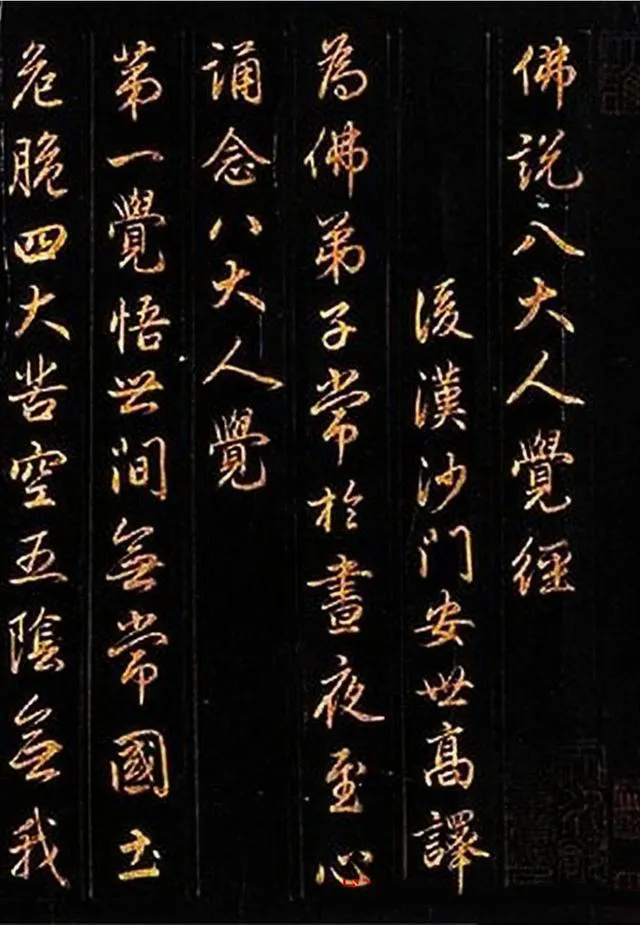 佛說八大人覺經
後漢沙門安世高譯
為佛弟子常於晝夜至心
誦念八大人覺
第一覺悟世間無常國土
危脆四大苦空五陰無我